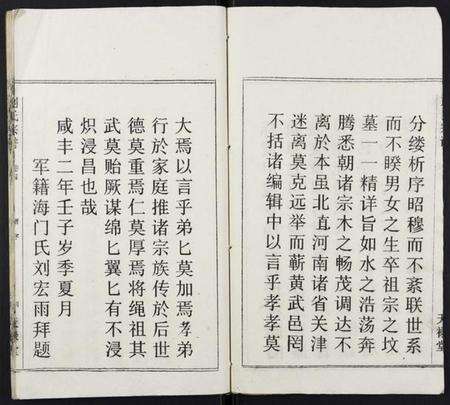 分缕析序昭穆而不紊联世系
而不暌男女之生卒祖宗之坟
墓一一精详旨如水之浩荡奔
腾悉朝诸宗木之畅茂调达不
离於本虽北直河南诸省关津
迷离莫克远举而蕲黄武邑罔
不括诸编辑中以言乎孝孝莫
大焉以言乎弟匕莫加焉孝弟
行於家庭推诸宗族传於后世
德莫重焉仁莫厚焉将绳祖其
武莫贻厥谋绵匕翼匕有不浸
炽浸昌也哉
咸丰二年壬子岁季夏月
军籍海门氏刘宏雨拜题